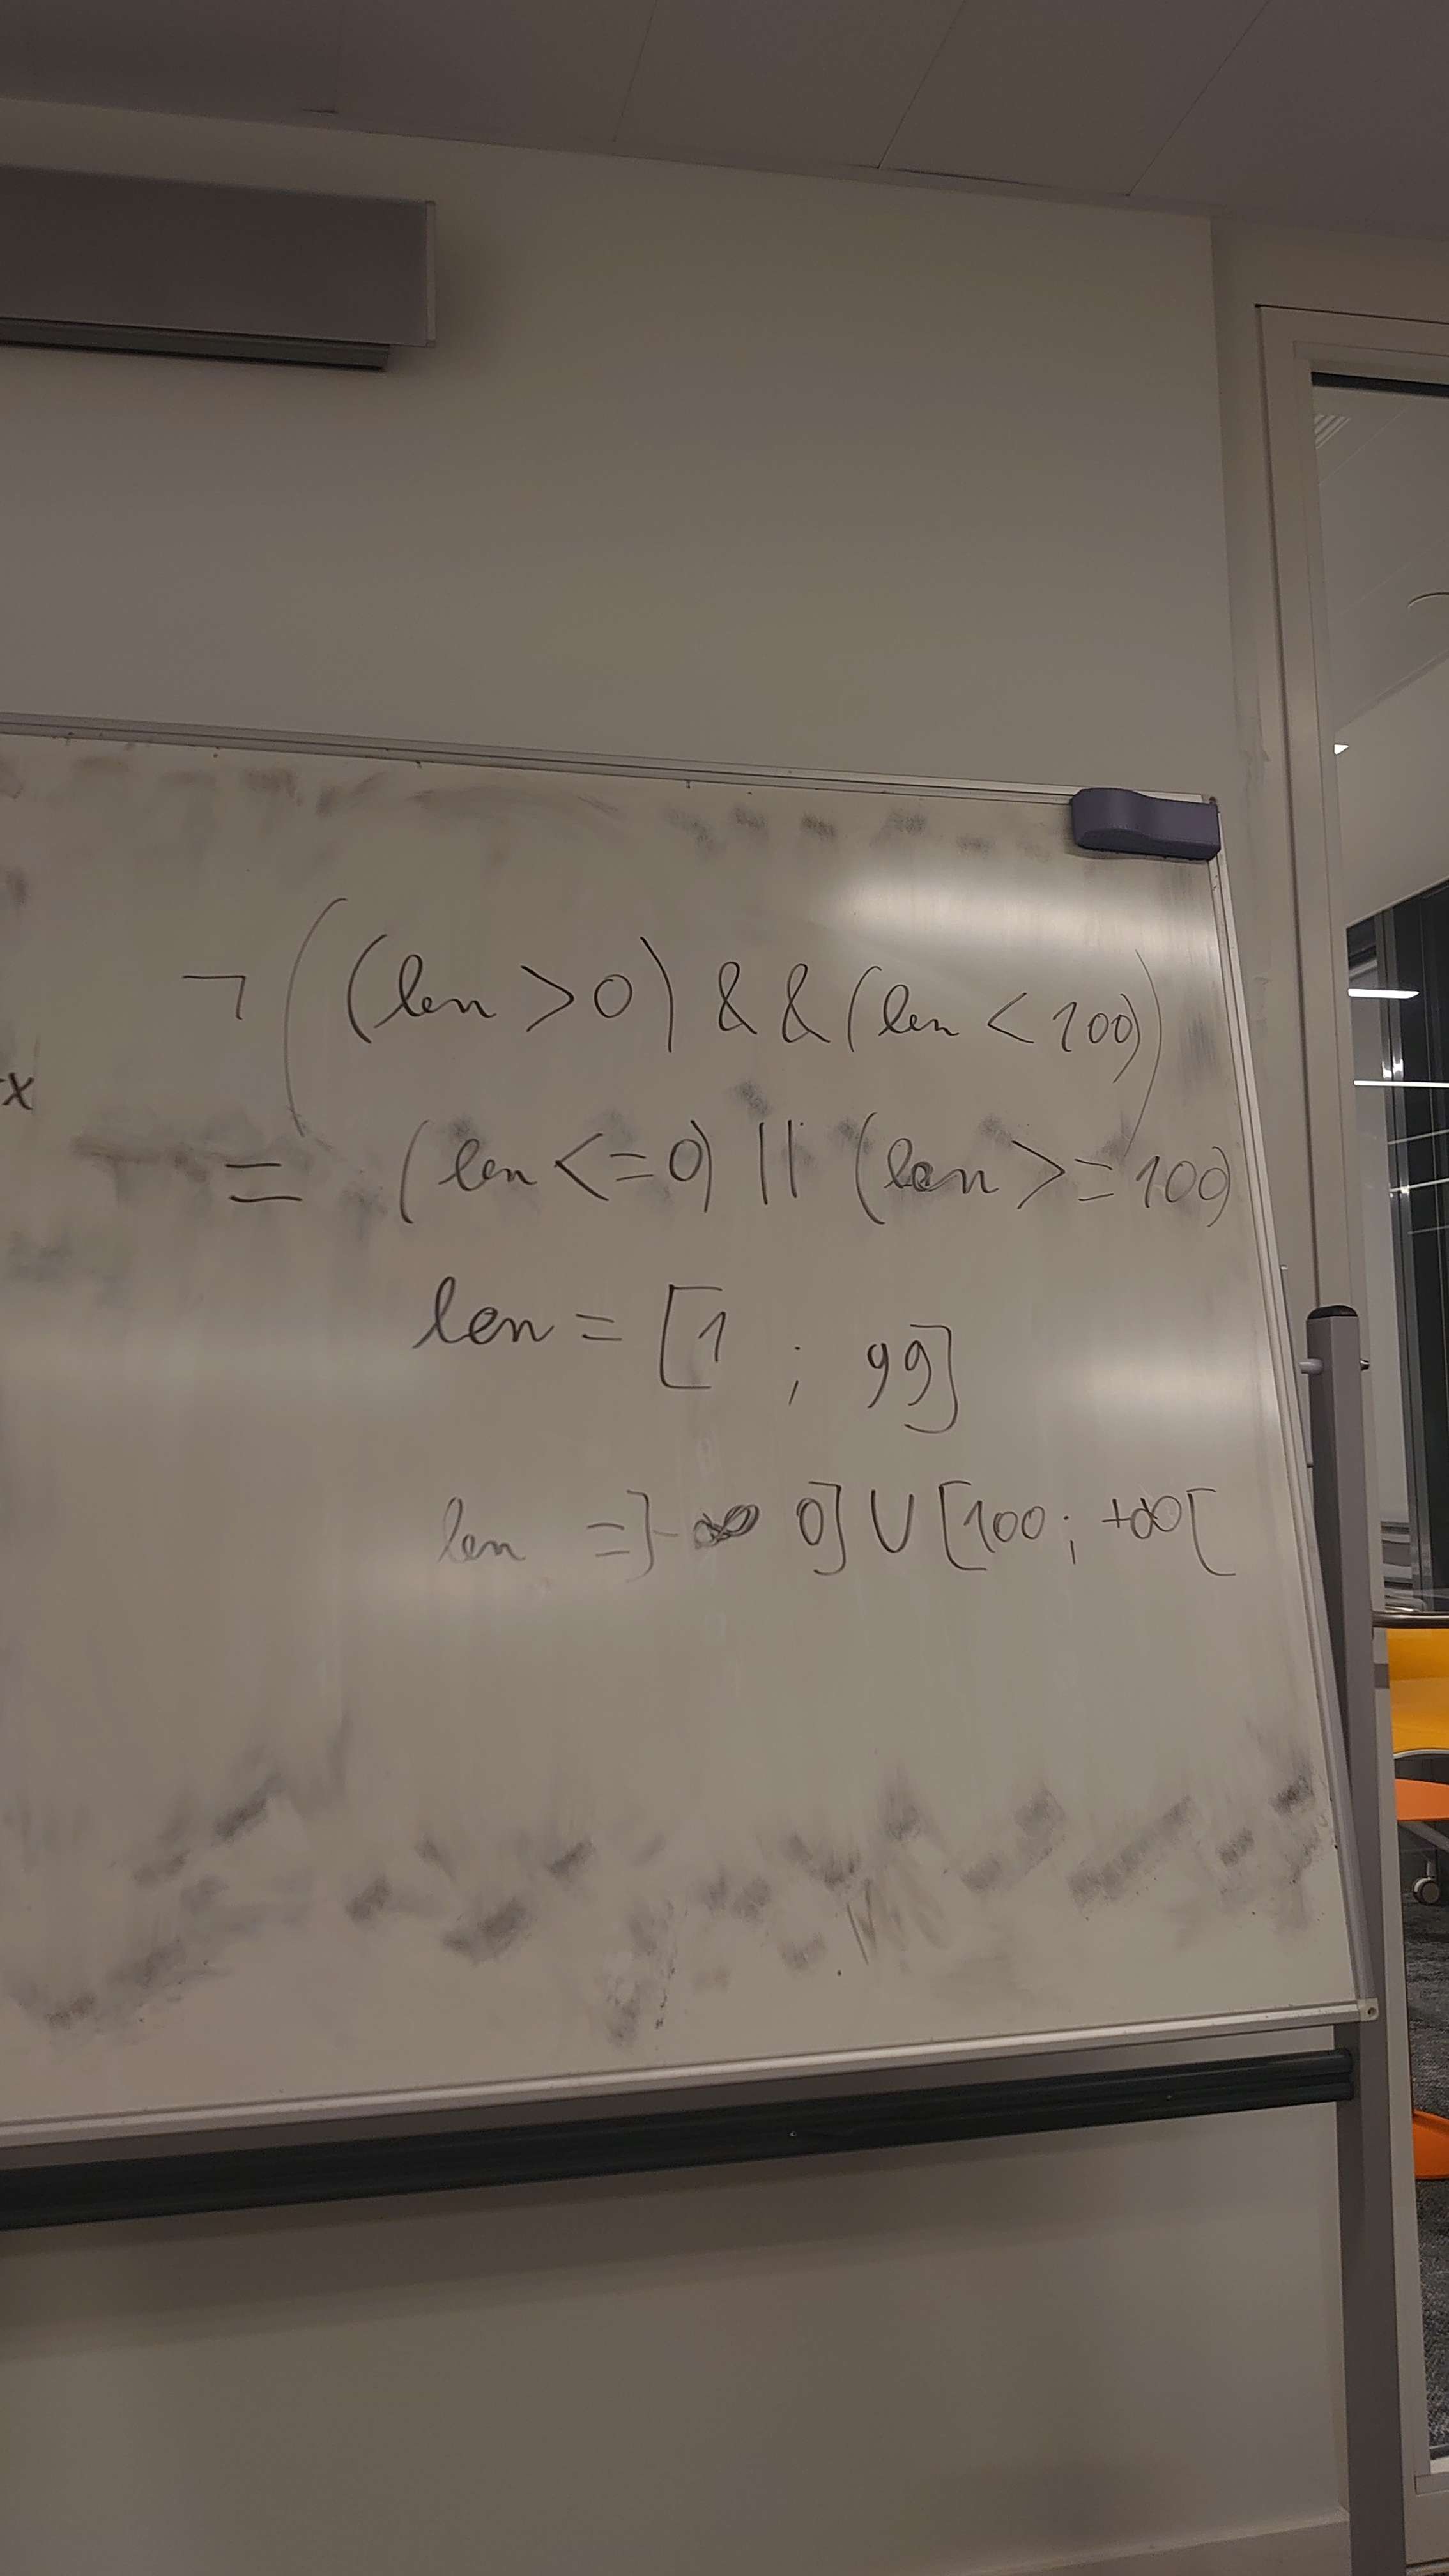 ¬((len > 0) && (len < 100))
x
= (len <= 0) || (len >= 100)
len = [1 ; 99]
len = ]-∞ 0] ∪ [100; +∞[